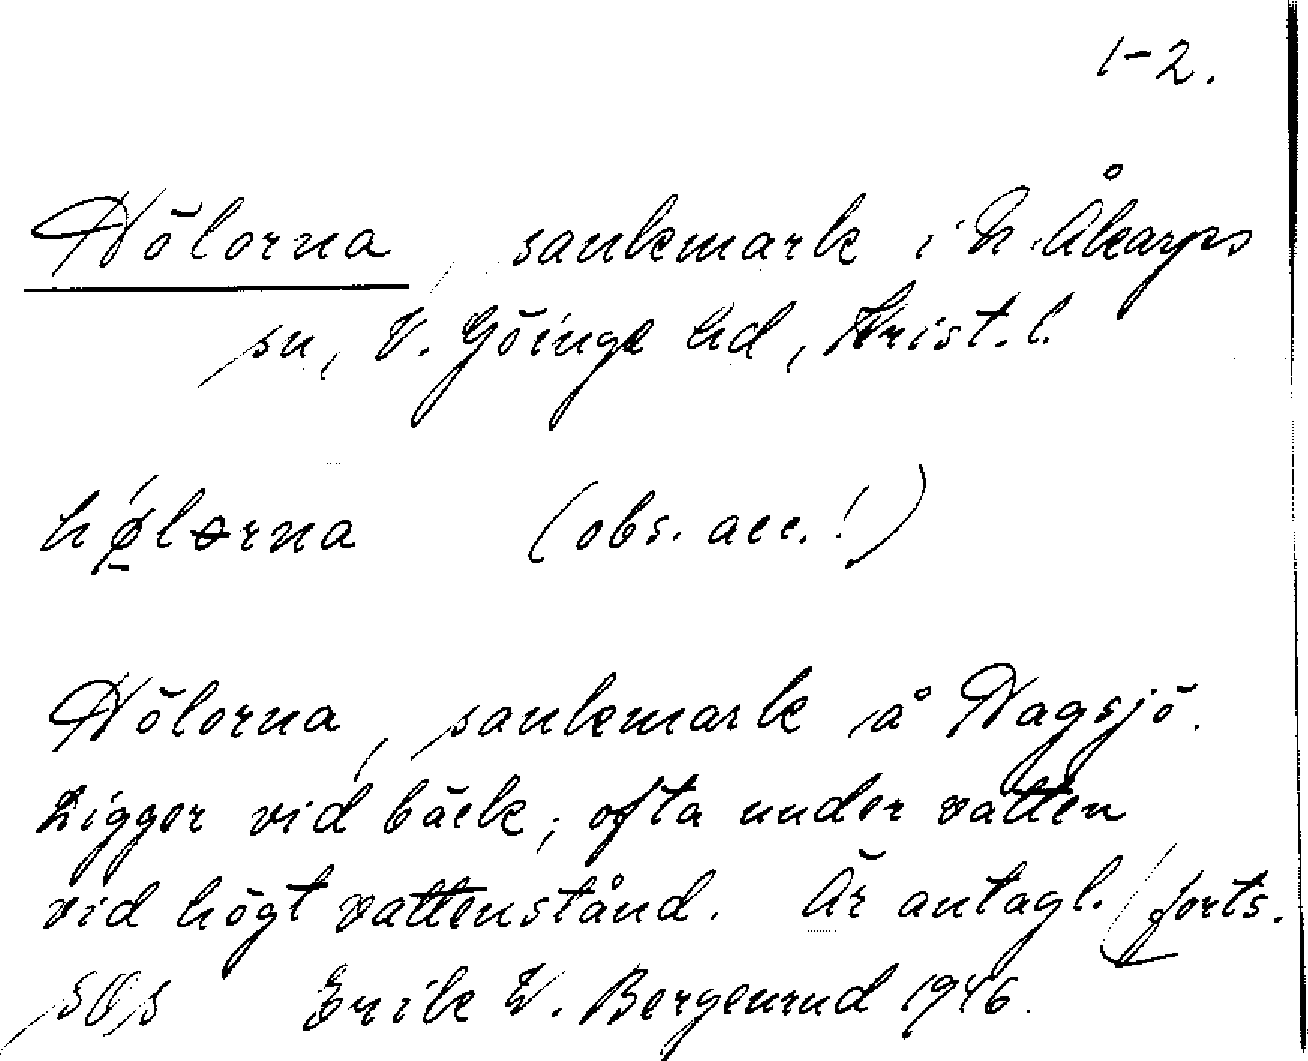 1-2.
Hölorna, sankmark i N. Åkarps
sn, V. Göinge hd, Krist. l.
hǿ̱lɵrna (obs. acc.!)
Hölorna, sankmark å Hagsjö.
Ligger vid bäck, ofta under vatten
vid högt vattenstånd. Är antagl. / forts.
Erik W. Bergenrud 1946.